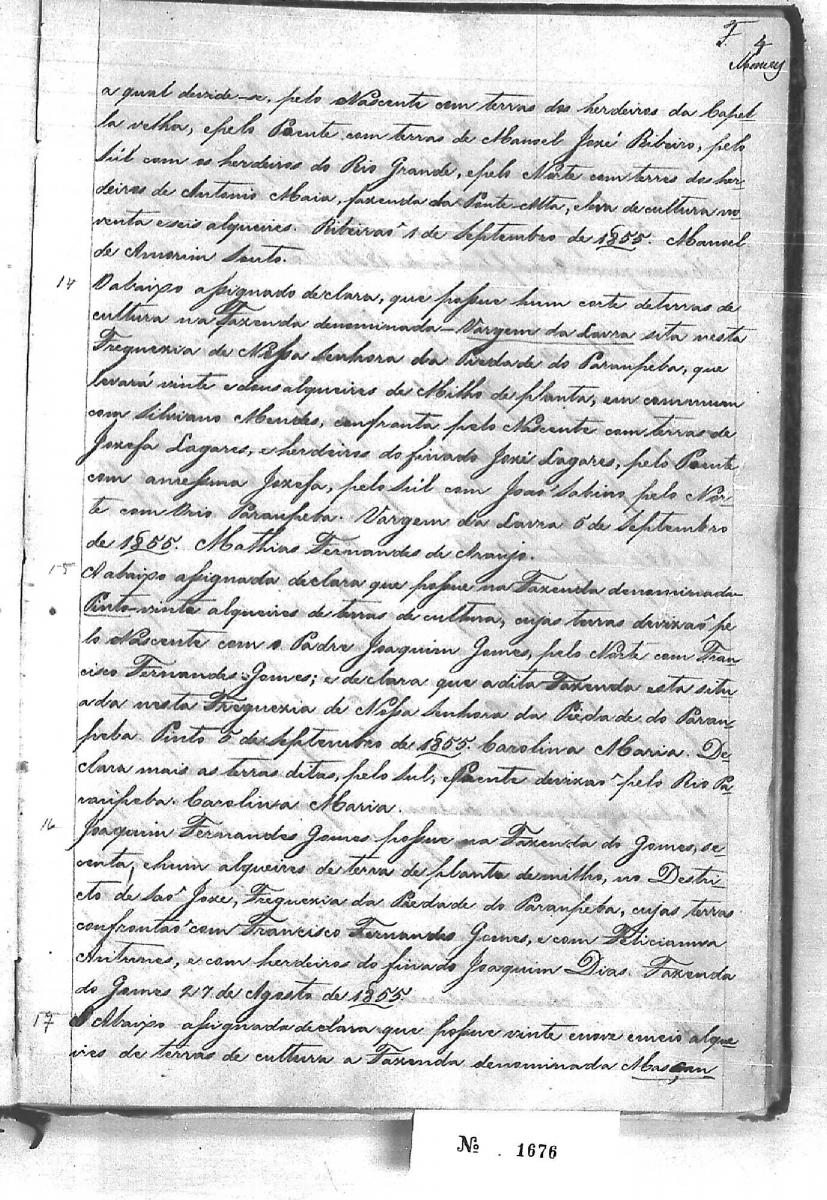 F 4
a qual devide-se, pelo Nascente com terras dos herdeiros da Capel-
la velha, e pelo Poente com terras de Manoel José Ribeiro, pelo
Sul com os herdeiros do Rio Grande, e pelo Norte com terras dos her-
deiros de Antonio Maia, fazenda da Ponte-Alta, e leva de cultura no
venta e seis alqueires. Ribeirão 1 de Septembro de 1855. Manoel
de Amorim Souto.
14 O abaixo assignado declara, que possue hum corte de terras de
cultura na Fazenda denominada - Vargem da Lavra sita nesta
Freguezia de Nossa Senhora da Piedade do Paraupeba, que
levará vinte e dous alqueires de Milho de planta, em commum
com Silvirano Mendes, confronta pelo Nascente com terras de
Jozefa Lagares, e herdeiros do finado José Lagares, pelo Poente
com a messma Jozefa, pelo Sul com João Sabino, pelo Nor-
te com o rio Paraupeba. Vargem da Lavra 5 de Septembro
de 1855. Mathias Fernandes de Araujo.
15 A abaixo assignada declara que possue na Fazenda denominada
Pinto vinte alqueires de terras de cultura, cujas terras devizaõ pe
lo Nascente com o Padre Joaquim Gomes, pelo Norte com Fran-
cisco Fernandes Gomes; e declara que a dita Fazenda esta situ-
ada nesta Freguezia de Nossa Senhora da Piedade do Parau-
peba. Pinto 5 de Septembro de 1855. Carolina Maria. De-
clara mais as terras ditas, pelo Sul, e Poente devizaõ pelo Rio Pa-
raupeba. Carolina Maria.
16 Joaquim Fernandes Gomes possue na Fazenda do Gomes, se-
centa, e hum alqueires de terra de planta de milho, no Destri-
cto de Saõ Joze, Freguezia da Piedade do Paraupeba, cujas terras
confrontaõ com Francisco Fernandes Gomes, e com Felicianna
Antunes, e com herdeiros do finado Joaquim Dias. Fazenda
do Gomes 27 de Agosto de 1855.
17 O Abaixo assignado declara que possue vinte e nove e meio alque-
ires de terras de cultura a Fazenda denominada Mascan
Nº 1676